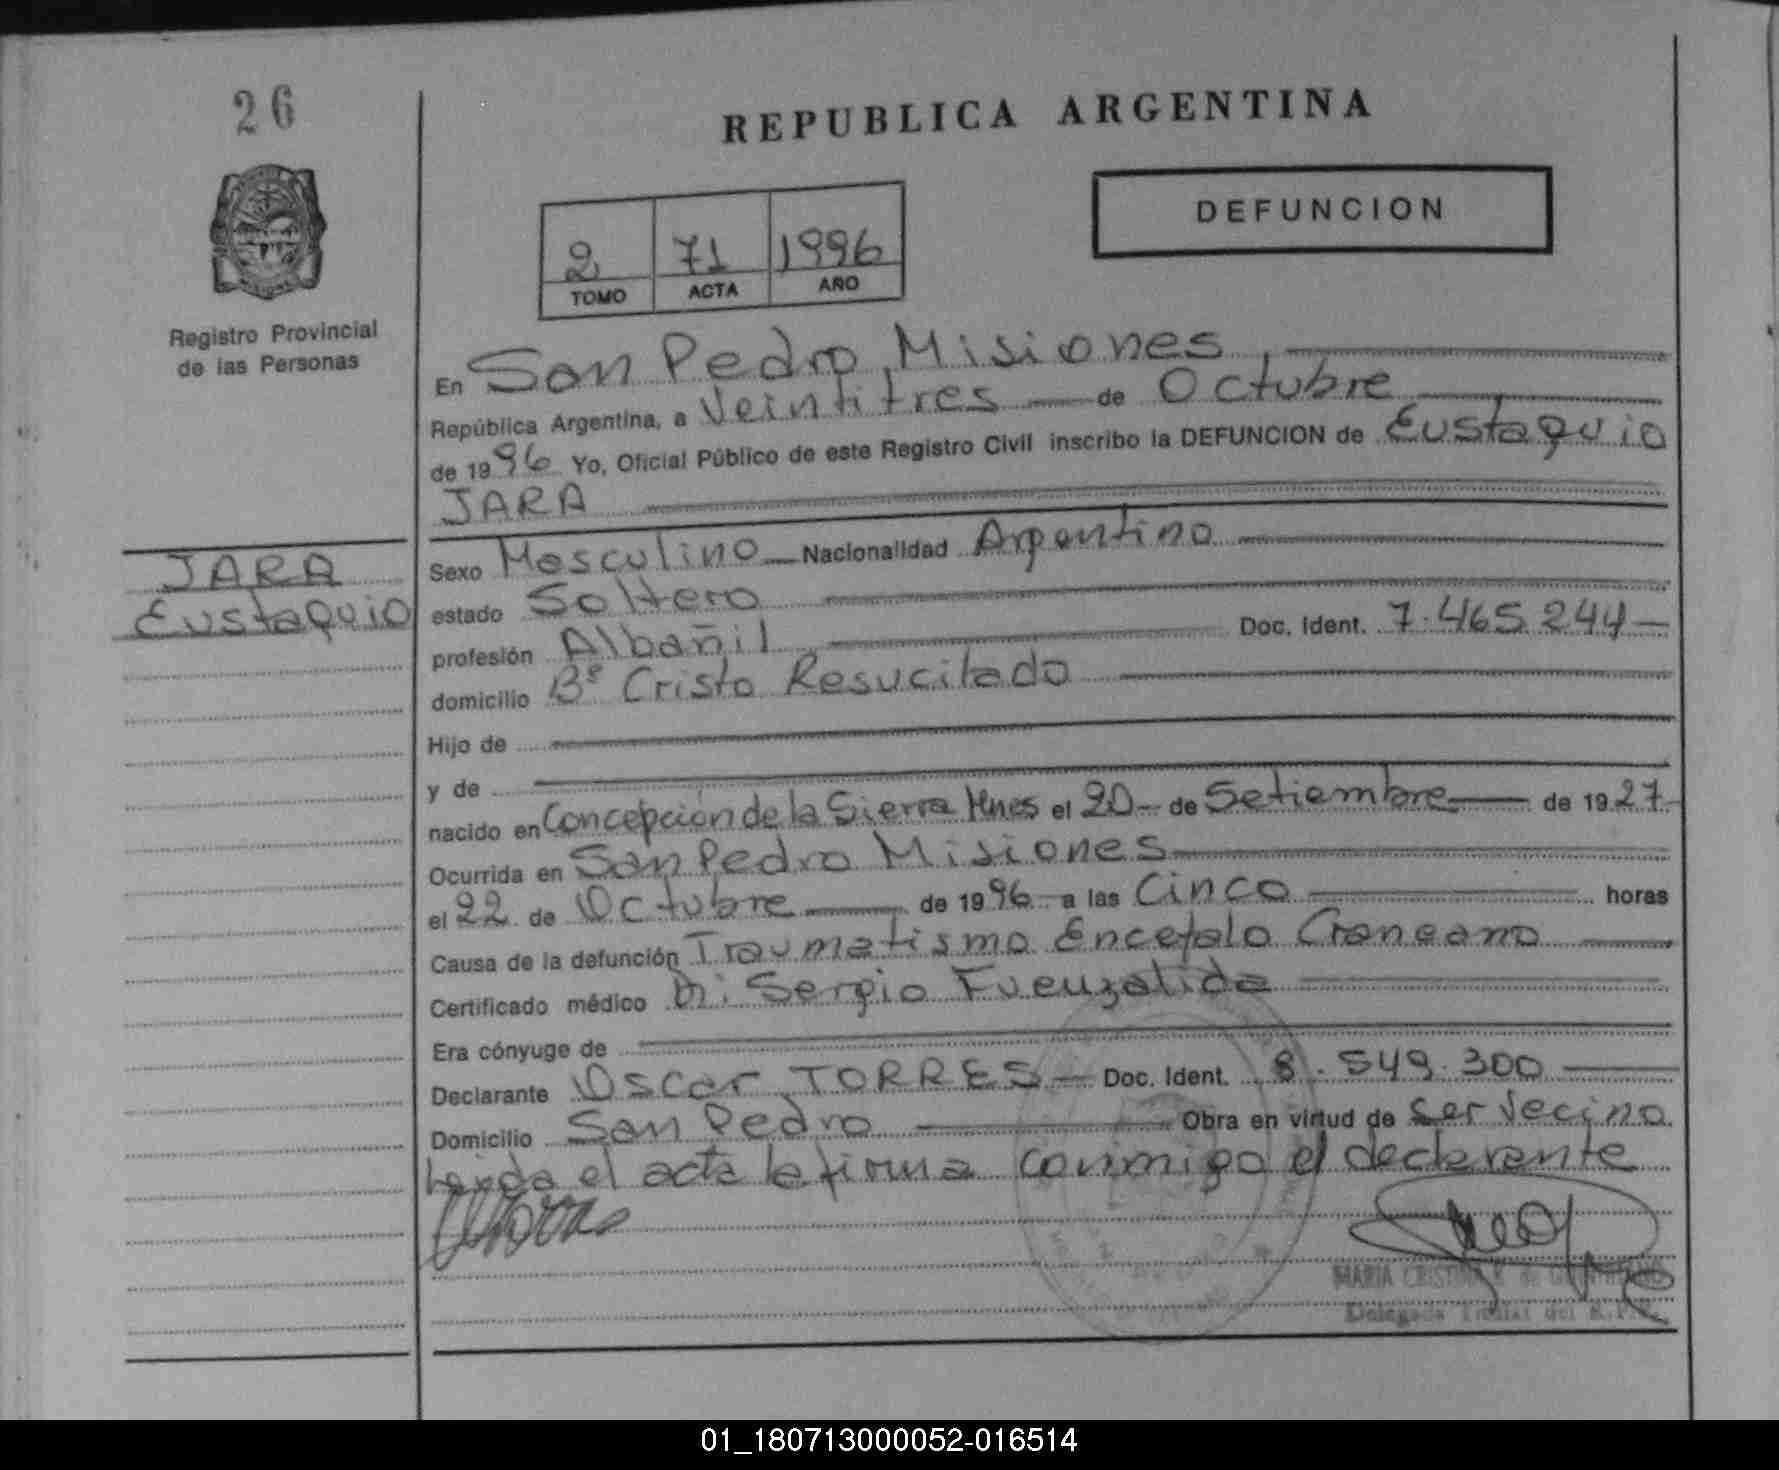 26
REPUBLICA ARGENTINA
DEFUNCION
2 71 1996
TOMO ACTA AÑO
Registro Provincial
de las Personas
En San Pedro, Misiones,
República Argentina, a Veintitres de Octubre
de 1996 Yo, Oficial Público de este Registro Civil inscribo la DEFUNCION de Eustaquio
JARA
JARA
Eustaquio
Sexo Masculino Nacionalidad Argentino
estado Soltero
profesión Albañil Doc. Ident. 7.465.244
domicilio Bº Cristo Resucitado
Hijo de
y de
nacido en Concepción de la Sierra Mnes el 20 de Setiembre de 1927
Ocurrida en San Pedro Misiones
el 22 de Octubre de 1996 a las Cinco horas
Causa de la defunción Traumatismo Encefalo Craneano
Certificado médico Dr. Sergio Fuenzalida
Era cónyuge de
Declarante Oscar TORRES Doc. Ident. 8.549.300
Domicilio San Pedro Obra en virtud de ser vecino
Leida el acta la firma conmigo el declarante
MARIA CRISTINA
Delegada Titular del R.P.P.
01_180713000052-016514